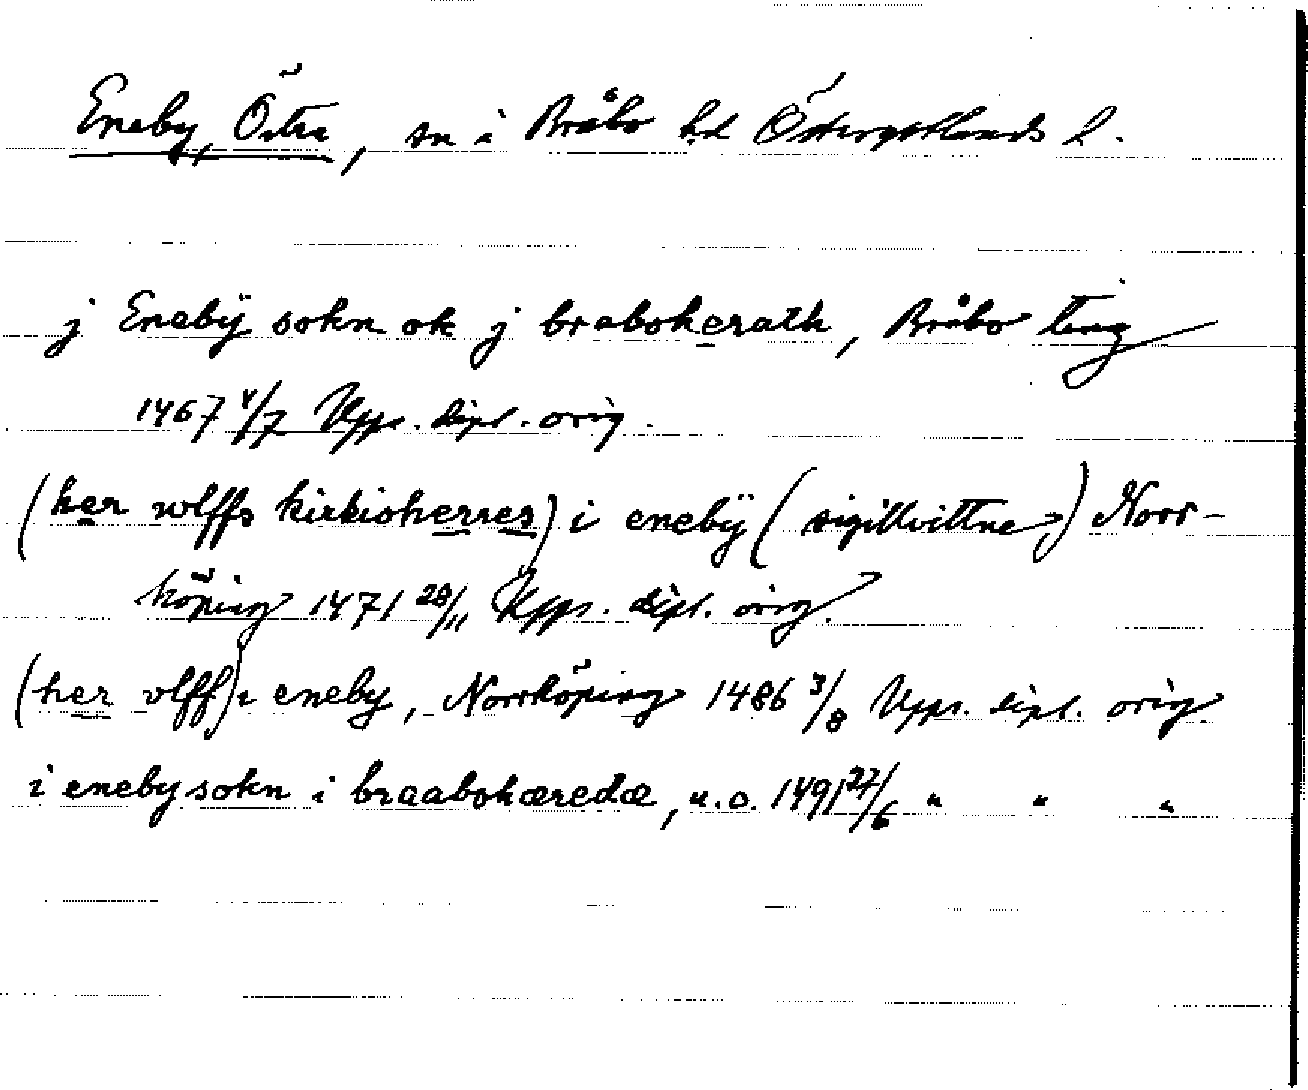 Eneby, Östra, sn i Bråbo hd Östergötlands l.
j Enebÿ sokn ok j brabokerath, Bråbo ting
1467 4/7 Upps. dipl. orig.
(her wlffs kirkioherres) i enebÿ (sigillvittne) Norr-
köping 1471 28/11 Upps. dipl. orig.
(her vlff) i eneby, Norrköping 1486 3/8 Upps. dipl. orig.
i eneby sokn i braabohæredæ, u.o. 1491 27/6 " " "